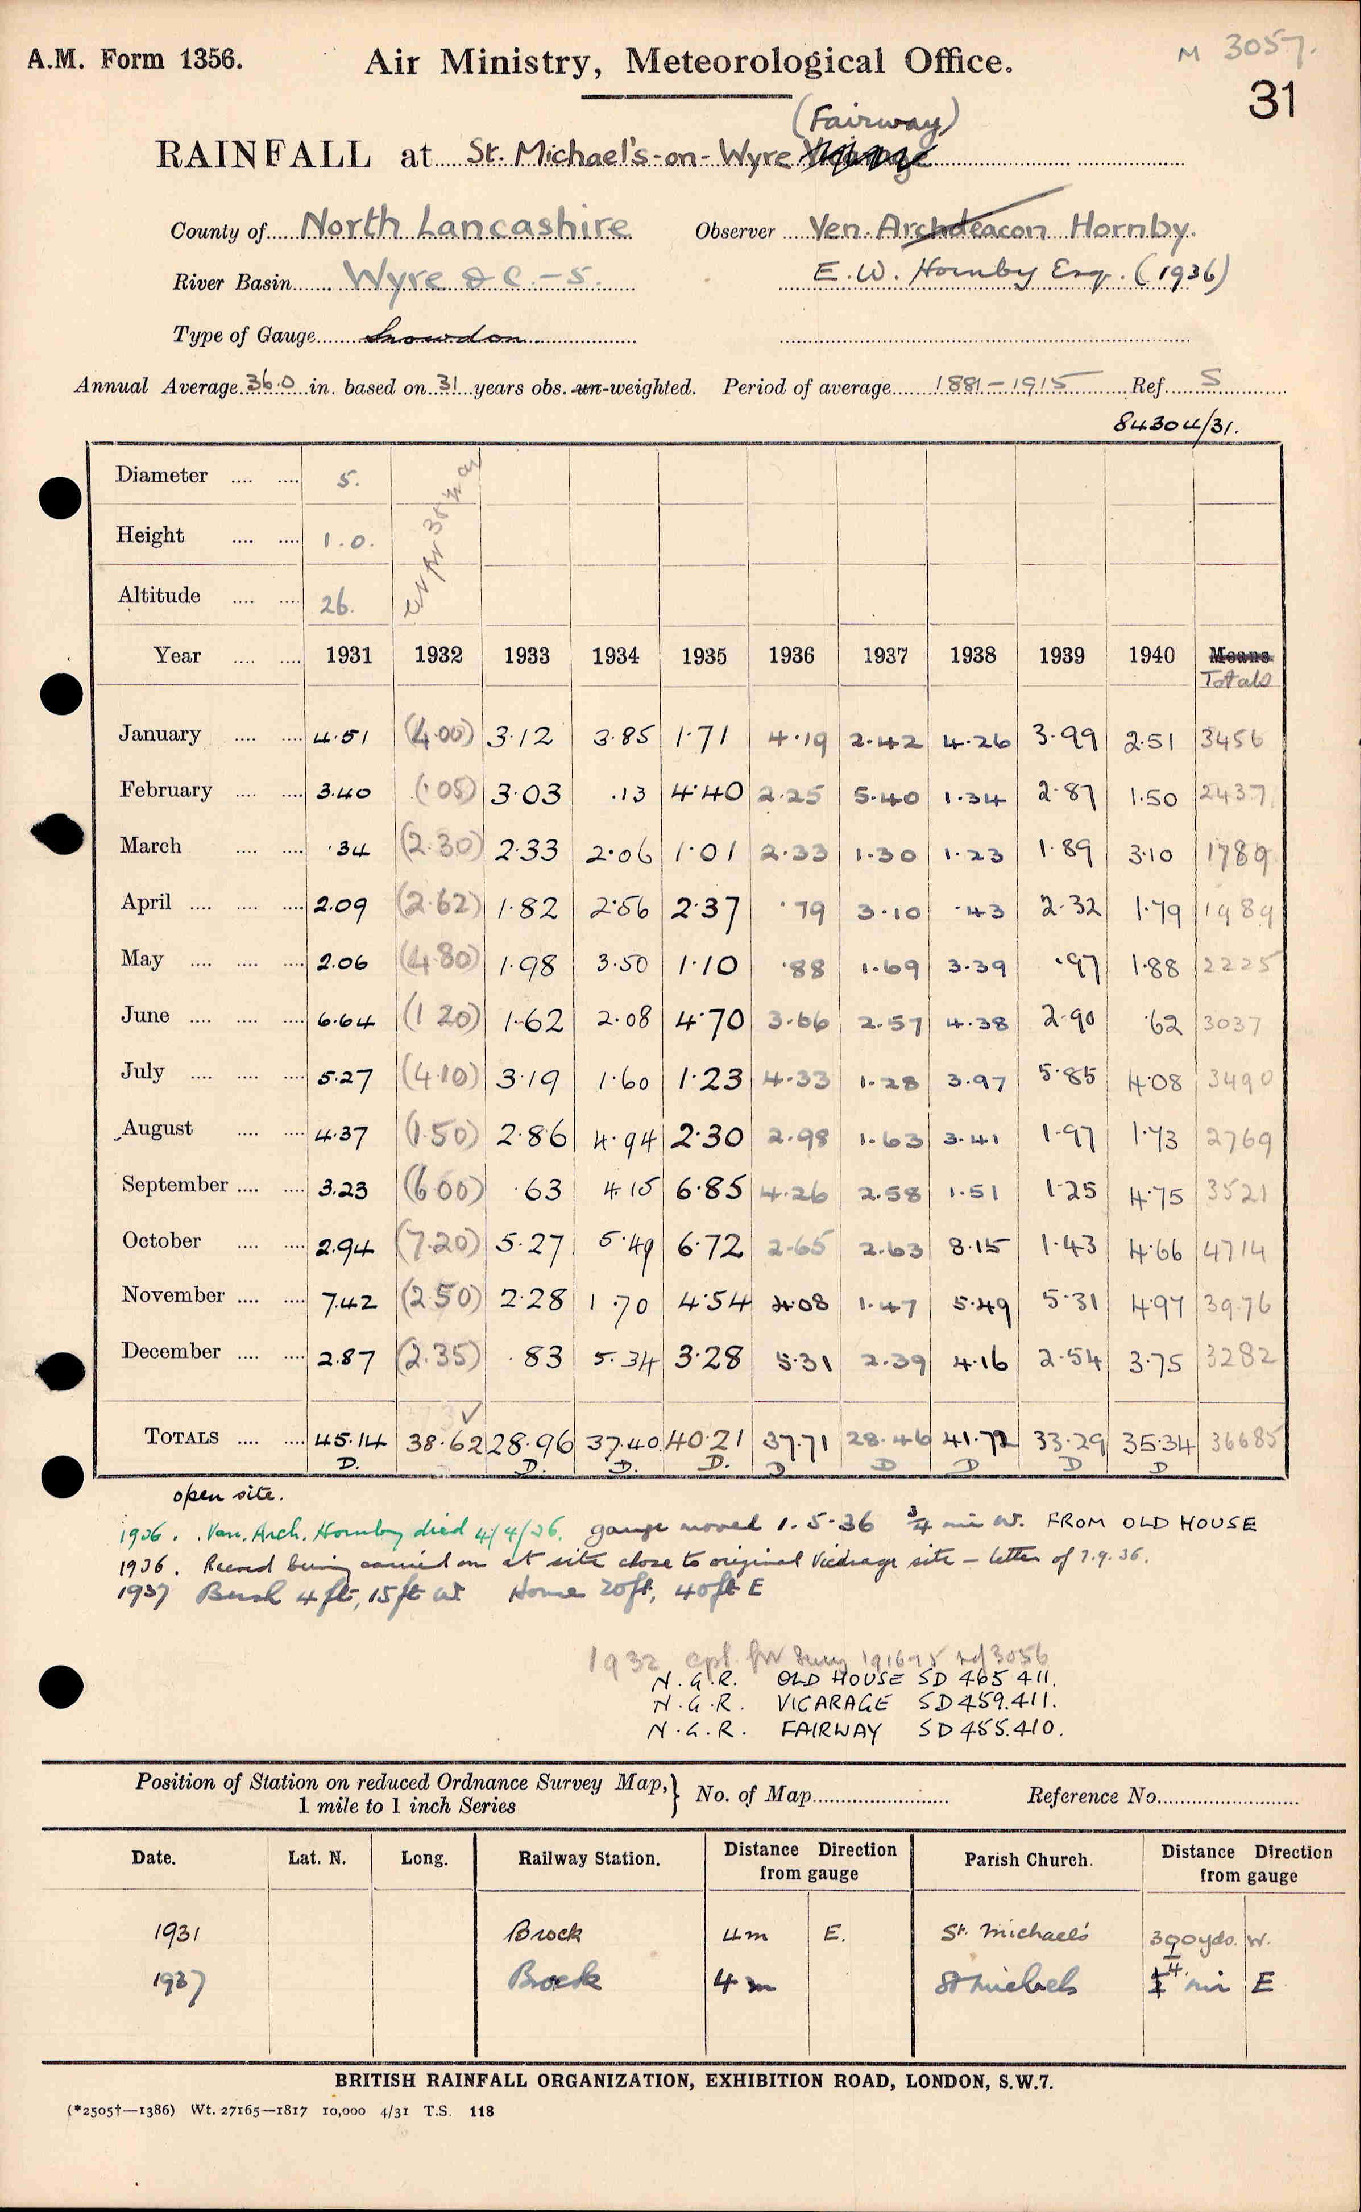 A.M. Form 1356.
Air Ministry, Meteorological Office.
M 3057.
31
(Fairway)
RAINFALL at St. Michael's-on-Wyre
County of North Lancashire
Observer Ven. Archdeacon Hornby.
River Basin Wyre &c.-S.
E.W. Hornby Esq. (1936)
Type of Gauge Snowdon
Annual Average 36.0 in. based on 31 years obs. un-weighted. Period of average 1881-1915 Ref. S
84304/31.
Diameter 5.
Height 1.0.
Altitude 26.
Year 1931 1932 1933 1934 1935 1936 1937 1938 1939 1940 Means
Totals
January 4.51 (4.00) 3.12 3.85 1.71 4.19 2.42 4.26 3.99 2.51 3456
February 3.40 (.05) 3.03 .13 4.40 2.25 5.40 1.34 2.87 1.50 2437
March .34 (2.30) 2.33 2.06 1.01 2.33 1.30 1.23 1.89 3.10 1789
April 2.09 (2.62) 1.82 2.56 2.37 .79 3.10 .43 2.32 1.79 1989
May 2.06 (4.80) 1.98 3.50 1.10 .88 1.69 3.39 .97 1.88 2225
June 6.64 (1.20) 1.62 2.08 4.70 3.66 2.57 4.38 2.90 .62 3037
July 5.27 (4.10) 3.19 1.60 1.23 4.33 1.28 3.97 5.85 4.08 3490
August 4.37 (1.50) 2.86 4.94 2.30 2.98 1.63 3.41 1.97 1.73 2769
September 3.23 (6.00) .63 4.15 6.85 4.26 2.58 1.51 1.25 4.75 3521
October 2.94 (7.20) 5.27 5.49 6.72 2.65 2.63 8.15 1.43 4.66 4714
November 7.42 (2.50) 2.28 1.70 4.54 4.08 1.47 5.49 5.31 4.97 3976
December 2.87 (2.35) .83 5.34 3.28 5.31 2.39 4.16 2.54 3.75 3282
TOTALS 45.14 38.62 28.96 37.40 40.21 37.71 28.46 41.72 33.29 35.34 36685
D. D. D. D. D D D D D
open site.
1936. Ven. Arch. Hornby died 4/4/36. gauge moved 1.5.36 3/4 mi W. FROM OLD HOUSE
1936. Record being carried on at site close to original Vicarage site - letter of 7.9.36.
1937 Bush 4 ft, 15 ft W House 20ft, 40ft E
1932 3056
N.G.R. OLD HOUSE SD 465 411.
N.G.R. VICARAGE SD 459.411.
N.G.R. FAIRWAY SD 455.410.
Position of Station on reduced Ordnance Survey Map, 1 mile to 1 inch Series } No. of Map Reference No.
Date. Lat. N. Long. Railway Station. Distance Direction from gauge Parish Church. Distance Direction from gauge
1931 Brock 4m E. St. Michael's 390yds. W.
1937 Brock 4 m St Michaels 1/4 mi E
BRITISH RAINFALL ORGANIZATION, EXHIBITION ROAD, LONDON, S.W.7.
(*2505†—1386) Wt. 27165—1817 10,000 4/31 T.S. 118